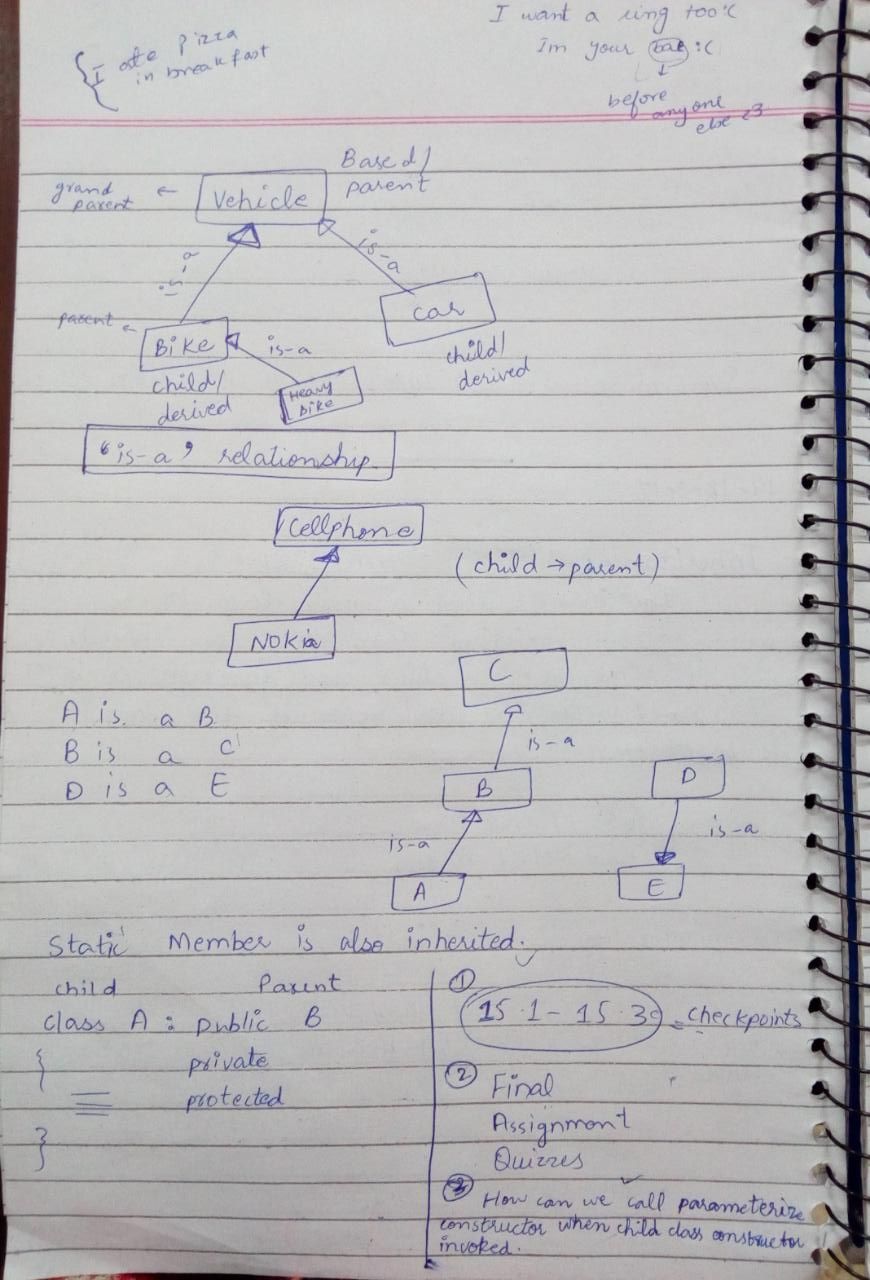 I ate pizza
in breakfast
I want a ring too :(
Im your bae :(
before
anyone
else <3
grand
parent
Vehicle
Based/
parent
is-a
is-a
parent
Bike
is-a
Car
child/
derived
Heavy
Bike
child/
derived
"is-a" relationship
Cellphone
(child → parent)
Nokia
C
A is a B
B is a C
D is a E
is-a
B
D
is-a
is-a
A
E
Static Member is also inherited.
child Parent
class A : public B
{ private
protected
}
①
15.1 - 15.3 = checkpoints
②
Final
Assignment
Quizzes
③ How can we call parameterize
constructor when child class constructor
invoked.